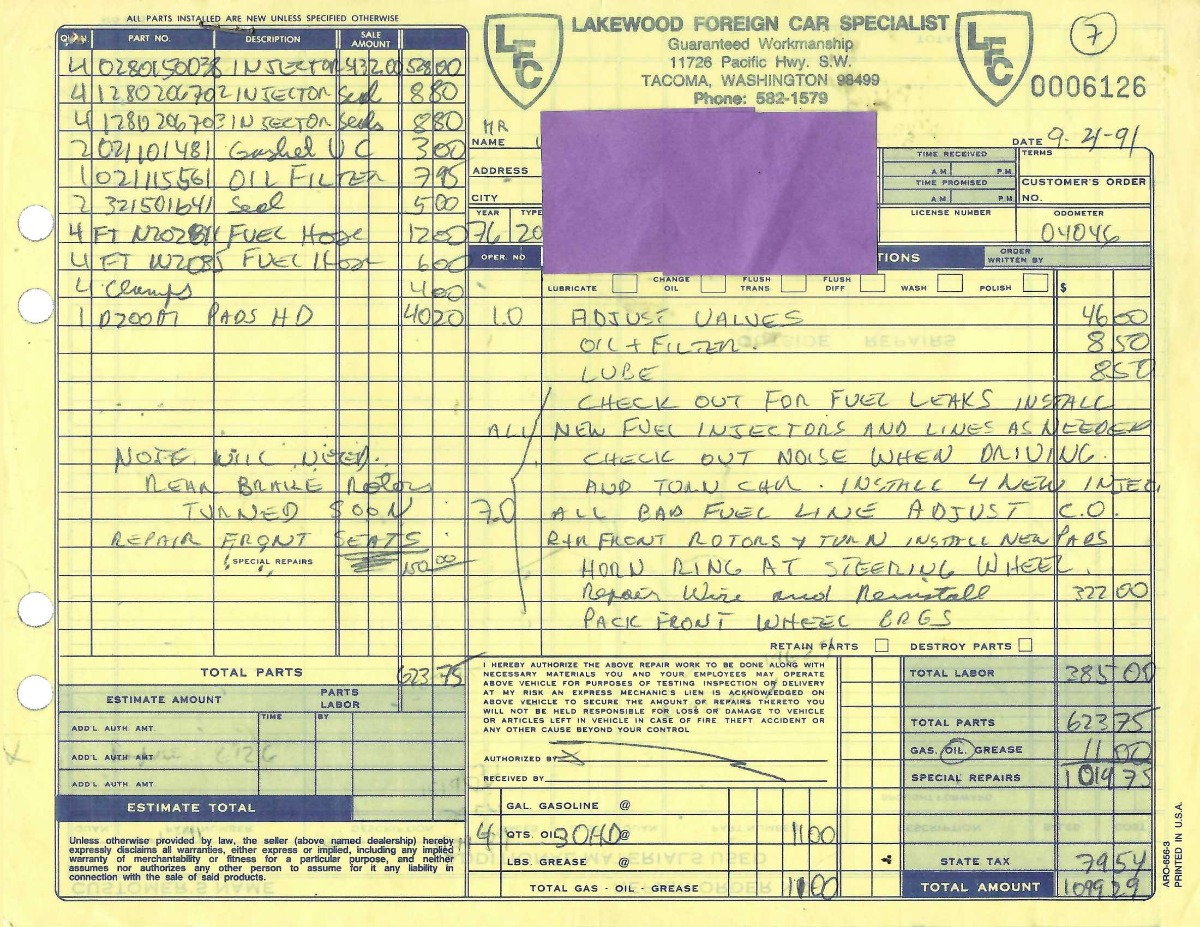 ALL PARTS INSTALLED ARE NEW UNLESS SPECIFIED OTHERWISE
QUAN. PART NO. DESCRIPTION SALE AMOUNT
4 0280150038 INJECTOR $132.00 528 00
4 1280206702 INJECTOR Seal 8 80
4 1280206703 INJECTOR Seals 8 80
2 021101481 Gasket V C 3 00
1 021115561 OIL FILTER 7 95
2 321501641 Seal 5 00
4 FT FUEL Hose 12 00
4 FT FUEL Hose 6 00
4 Clamps 4 00
1 PADS HD 40 20
NOTE WILL NEED.
REAR BRAKE Rotors
TURNED SOON
REPAIR FRONT SEATS
SPECIAL REPAIRS
TOTAL PARTS 623 75
ESTIMATE AMOUNT PARTS LABOR
ADD'L AUTH AMT TIME BY
ADD'L AUTH AMT
ADD'L AUTH AMT
ESTIMATE TOTAL
Unless otherwise provided by law, the seller (above named dealership) hereby
expressly disclaims all warranties, either express or implied, including any implied
warranty of merchantability or fitness for a particular purpose, and neither
assumes nor authorizes any other person to assume for it any liability in
connection with the sale of said products.
LFC
LAKEWOOD FOREIGN CAR SPECIALIST
Guaranteed Workmanship
11726 Pacific Hwy. S.W.
TACOMA, WASHINGTON 98499
Phone: 582-1579
LFC
7
0006126
MR
NAME
DATE 9-21-91
ADDRESS
TIME RECEIVED A.M. P.M.
TERMS
TIME PROMISED A.M. P.M.
CUSTOMER'S ORDER NO.
CITY
YEAR TYPE LICENSE NUMBER ODOMETER
76 20 04046
OPER. NO TIONS ORDER WRITTEN BY
LUBRICATE CHANGE OIL FLUSH TRANS FLUSH DIFF WASH POLISH $
1.0 ADJUST VALVES 46 00
OIL + FILTER. 8 50
LUBE 8 50
CHECK OUT FOR FUEL LEAKS INSTALL
ALL NEW FUEL INJECTORS AND LINES AS NEEDED
CHECK OUT NOISE WHEN DRIVING.
AND TURN CAR. INSTALL 4 NEW INJEC.
7.0 ALL BAD FUEL LINE ADJUST C.O.
R+R FRONT ROTORS + TURN INSTALL NEW PADS
HORN RING AT STEERING WHEEL.
Repair Wire and Reinstall 322 00
PACK FRONT WHEEL BRGS
RETAIN PARTS DESTROY PARTS
I HEREBY AUTHORIZE THE ABOVE REPAIR WORK TO BE DONE ALONG WITH
NECESSARY MATERIALS YOU AND YOUR EMPLOYEES MAY OPERATE
ABOVE VEHICLE FOR PURPOSES OF TESTING INSPECTION OR DELIVERY
AT MY RISK AN EXPRESS MECHANIC'S LIEN IS ACKNOWLEDGED ON
ABOVE VEHICLE TO SECURE THE AMOUNT OF REPAIRS THERETO YOU
WILL NOT BE HELD RESPONSIBLE FOR LOSS OR DAMAGE TO VEHICLE
OR ARTICLES LEFT IN VEHICLE IN CASE OF FIRE THEFT ACCIDENT OR
ANY OTHER CAUSE BEYOND YOUR CONTROL
AUTHORIZED BY X
RECEIVED BY
GAL. GASOLINE @
4 QTS. OIL 30HD @ 11 00
LBS. GREASE @
TOTAL GAS - OIL - GREASE 11 00
TOTAL LABOR 385 00
TOTAL PARTS 623 75
GAS. OIL. GREASE 11 00
SPECIAL REPAIRS 1019 75
STATE TAX 79 54
TOTAL AMOUNT 1099 29
ARO-656-3
PRINTED IN U.S.A.